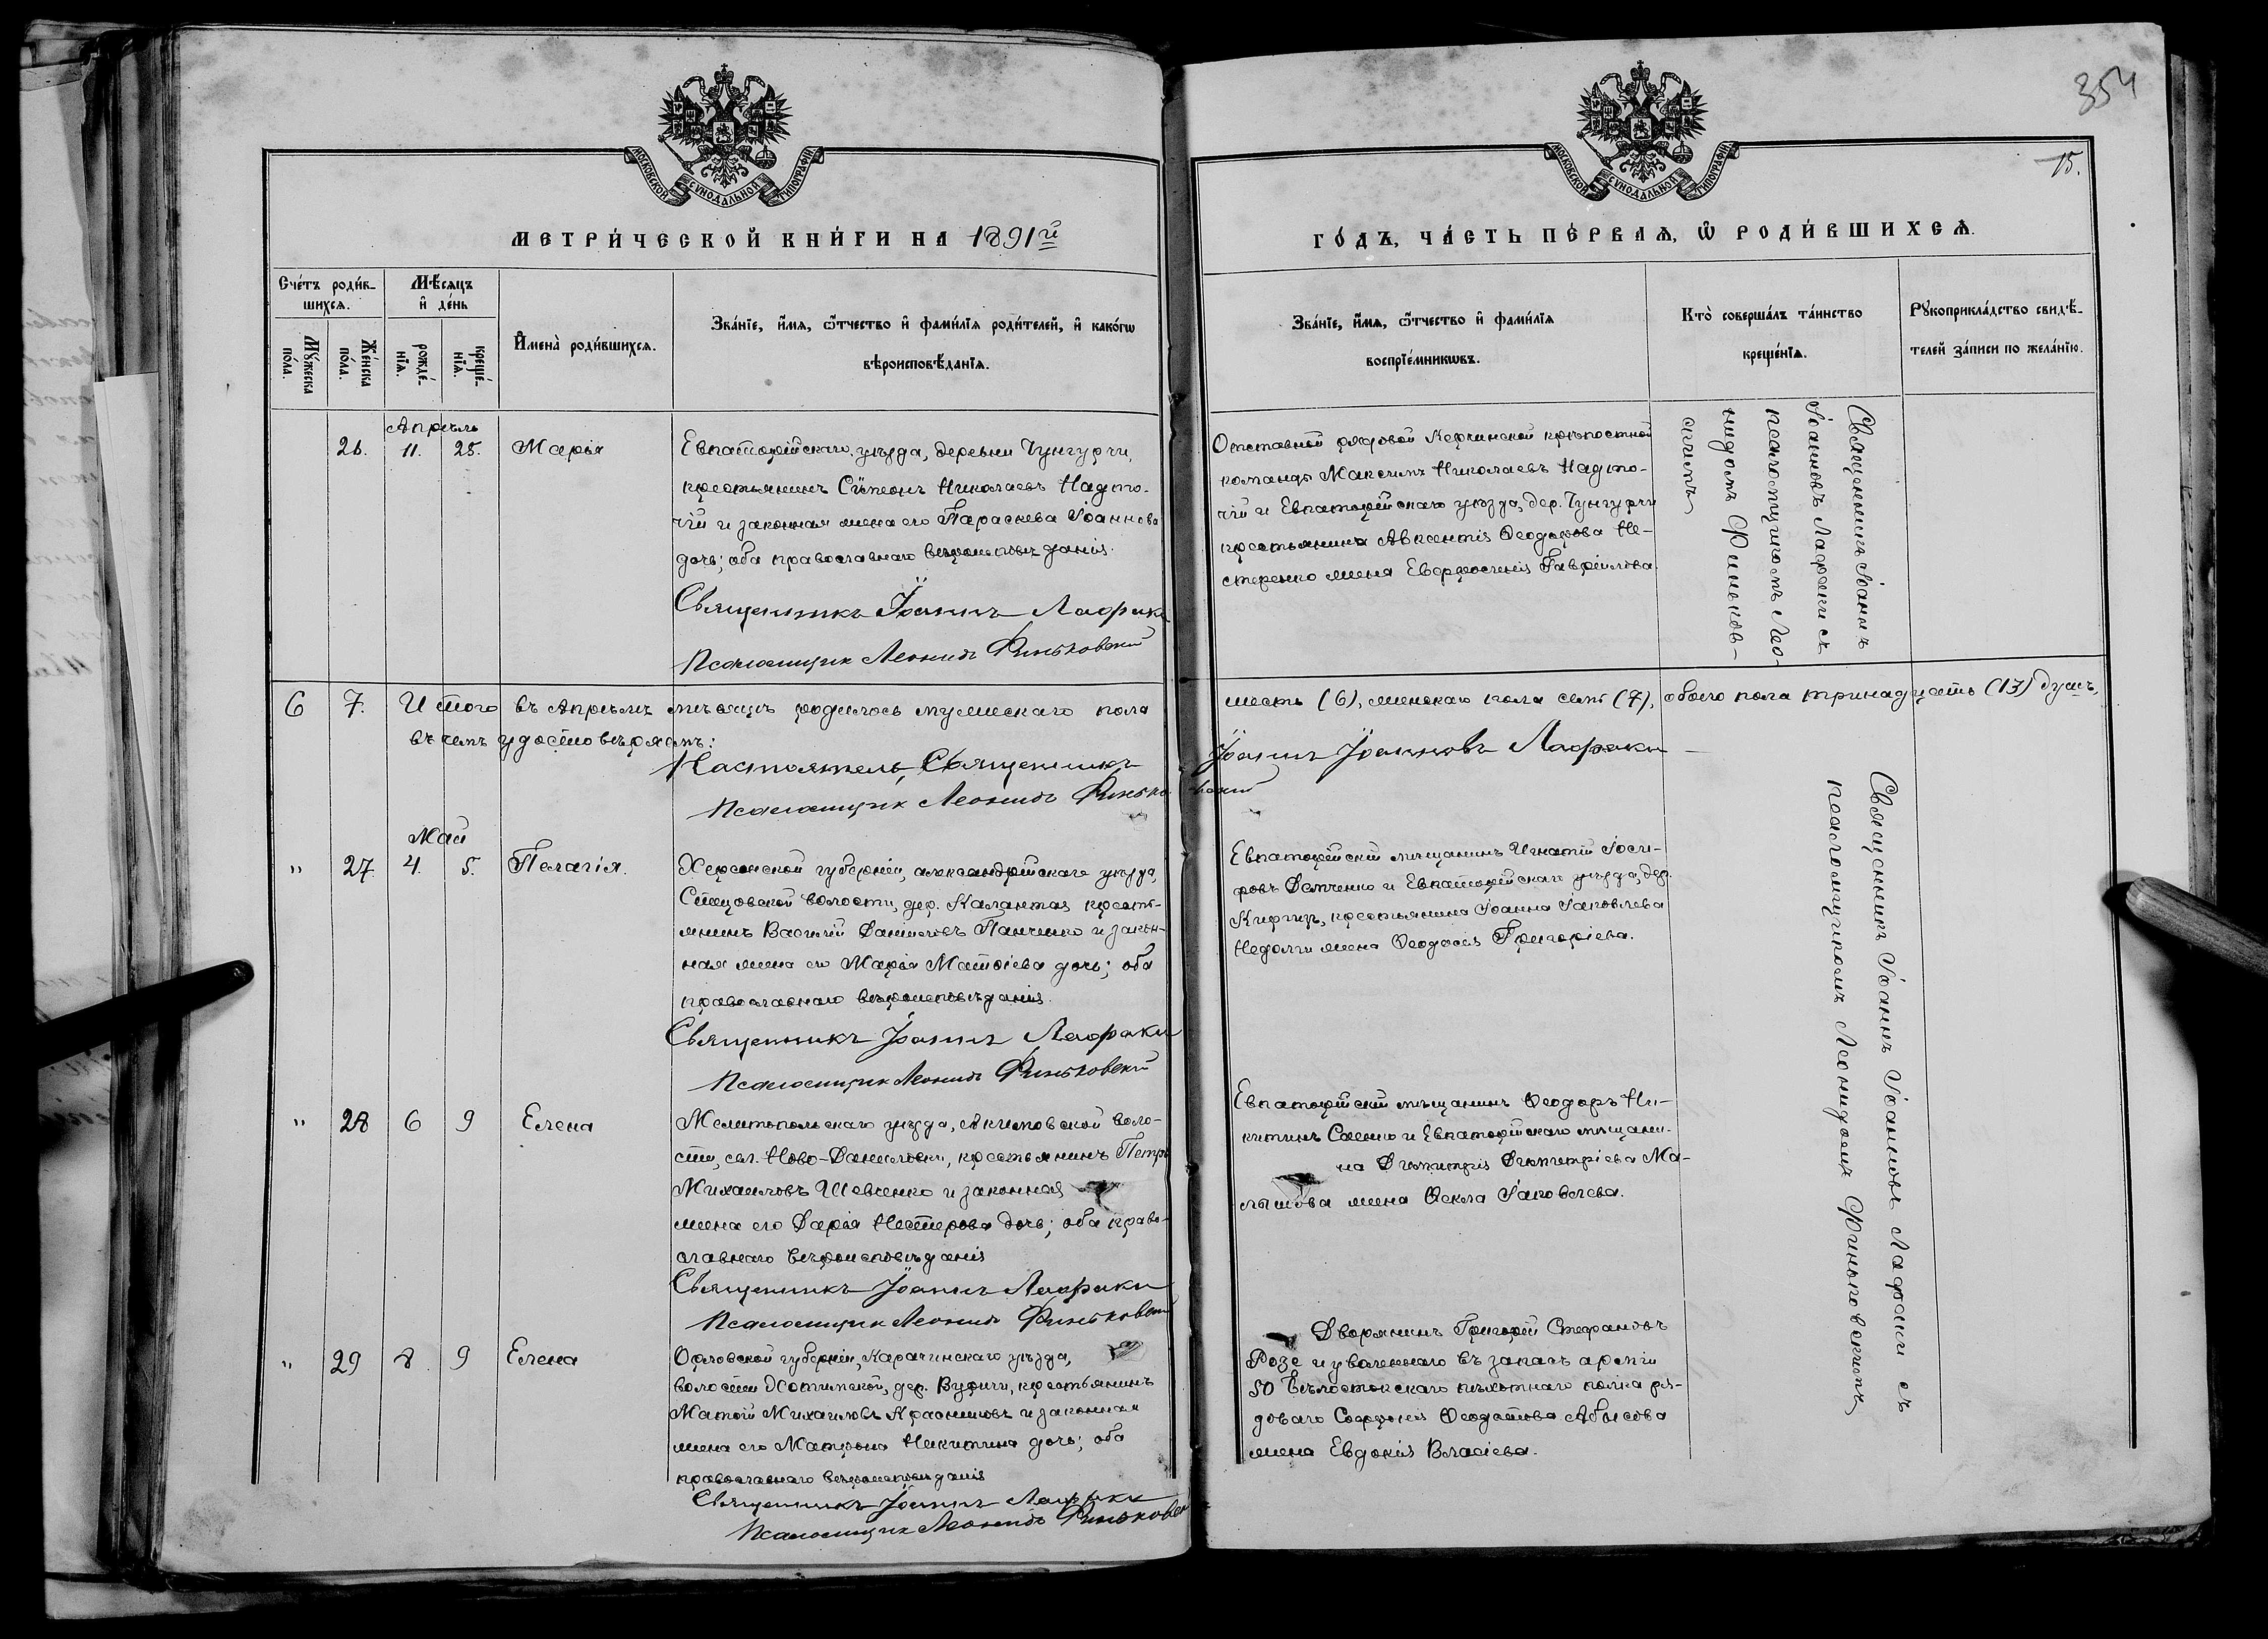 354
15.
МОСКОВСКОЙ СѴНОДАЛЬНОЙ ТИПОГРАФІИ
МОСКОВСКОЙ СѴНОДАЛЬНОЙ ТИПОГРАФІИ
МЕТРИ́ЧЕСКОЙ КНИ́ГИ НА 1891й
ГО́ДЪ, ЧА́СТЬ ПЕ́РВАѦ, Ѡ РОДИ́ВШИХСѦ.
Сче́тъ роди́в-
шихсѧ.
Мѣ́сѧцъ
и҆ де́нь
Мꙋ́жеска
по́ла.
Же́нска
по́ла.
рожде́-
нїѧ.
креще́-
нїѧ.
И҆мена̀ роди́вшихсѧ.
Зва́нїе, и҆́мѧ, ѻ҆́тчество и҆ фами́лїѧ роди́телей, и҆ како́гѡ
вѣроисповѣ́данїѧ.
Зва́нїе, и҆́мѧ, ѻ҆́тчество и҆ фами́лїѧ
воспрїе́мникѡвъ.
Кто̀ соверша́лъ та́инство
креще́нїѧ.
Рꙋкоприкла́дство свидѣ́-
телей за́писи по жела́нїю.
Апрѣль
26. 11. 25. Марія
Евпаторійскаго уѣзда, деревни Чунгурчи,
крестьянинъ Симеонъ Николаевъ Надто-
чій и законная жена его Параскева Іоаннова
дочь; оба православнаго вѣроисповѣданія.
Священникъ Іоаннъ Лафаки
Псаломщик Леонидъ Финьковскій
Отставной рядовой Керчинской крѣпостной
команды Максимъ Николаевъ Надто-
чій и Евпаторійскаго уѣзда, дер. Чунгурчи
крестьянина Авксентія Ѳеодорова Не-
стеренко жена Евфросинія Гавріилова.
Священникъ Іоаннъ
Іоанновъ Лафаки съ
псаломщикомъ Лео-
нидомъ Финьков-
скимъ
6 7. Итого въ Апрѣлѣ мѣсяцѣ родилось мужескаго пола
шесть (6), женскаго пола семь (7), обоего пола тринадцать (13) душъ,
въ чемъ удостовѣряемъ:
Настоятель, Священникъ Іоаннъ Іоанновъ Лафаки
Псаломщик Леонидъ Финьковскій
Май
" 27. 4. 5. Пелагія.
Херсонской губерніи, александрійскаго уѣзда,
волости, дер. Калантая кресть-
янинъ Василій Даниловъ Панченко и закон-
ная жена его Марія Матѳіева дочь; оба
православнаго вѣроисповѣданія.
Священникъ Іоаннъ Лафаки
Псаломщик Леонидъ Финьковскій
Евпаторійскій мѣщанинъ Игнатій Іоси-
фовъ Демченко и Евпаторійскаго уѣзда, дер.
крестьянина Іоанна Іаковлева
жена Ѳеодосія Григоріева.
Священникъ Іоаннъ Іоанновъ Лафаки съ
псаломщикомъ Леонидомъ Финьковскимъ
" 28 6 9 Елена
Мелитопольскаго уѣзда, Акимовской воло-
сти, сел. Ново-Даниловки, крестьянинъ Петръ
Михаиловъ Шевченко и законная
жена его Дарія Нестерова дочь; оба право-
славнаго вѣроисповѣданія
Священникъ Іоаннъ Лафаки
Псаломщик Леонидъ Финьковскій
Евпаторійскій мѣщанинъ Ѳеодоръ Ни-
китинъ Саенко и Евпаторійскаго мѣщани-
на Димитрія Димитріева Ма-
лышова жена Ѳекла Іаковлева.
" 29 8. 9 Елена
Орловской губерніи, Карачинскаго уѣзда,
волости Хотимской, дер. крестьянинъ
Матѳій Михаиловъ Красниковъ и законная
жена его Матрона Никитина дочь; оба
православнаго вѣроисповѣданія
Священникъ Іоаннъ Лафаки
Псаломщик Леонидъ Финьковскій
Дворянинъ Григорій Стефановъ
Розе и уволеннаго въ запасъ арміи
50 Бѣлостокскаго пѣхотнаго полка ря-
доваго Софронія Ѳеодотова Абысова
жена Евдокія Власіева.